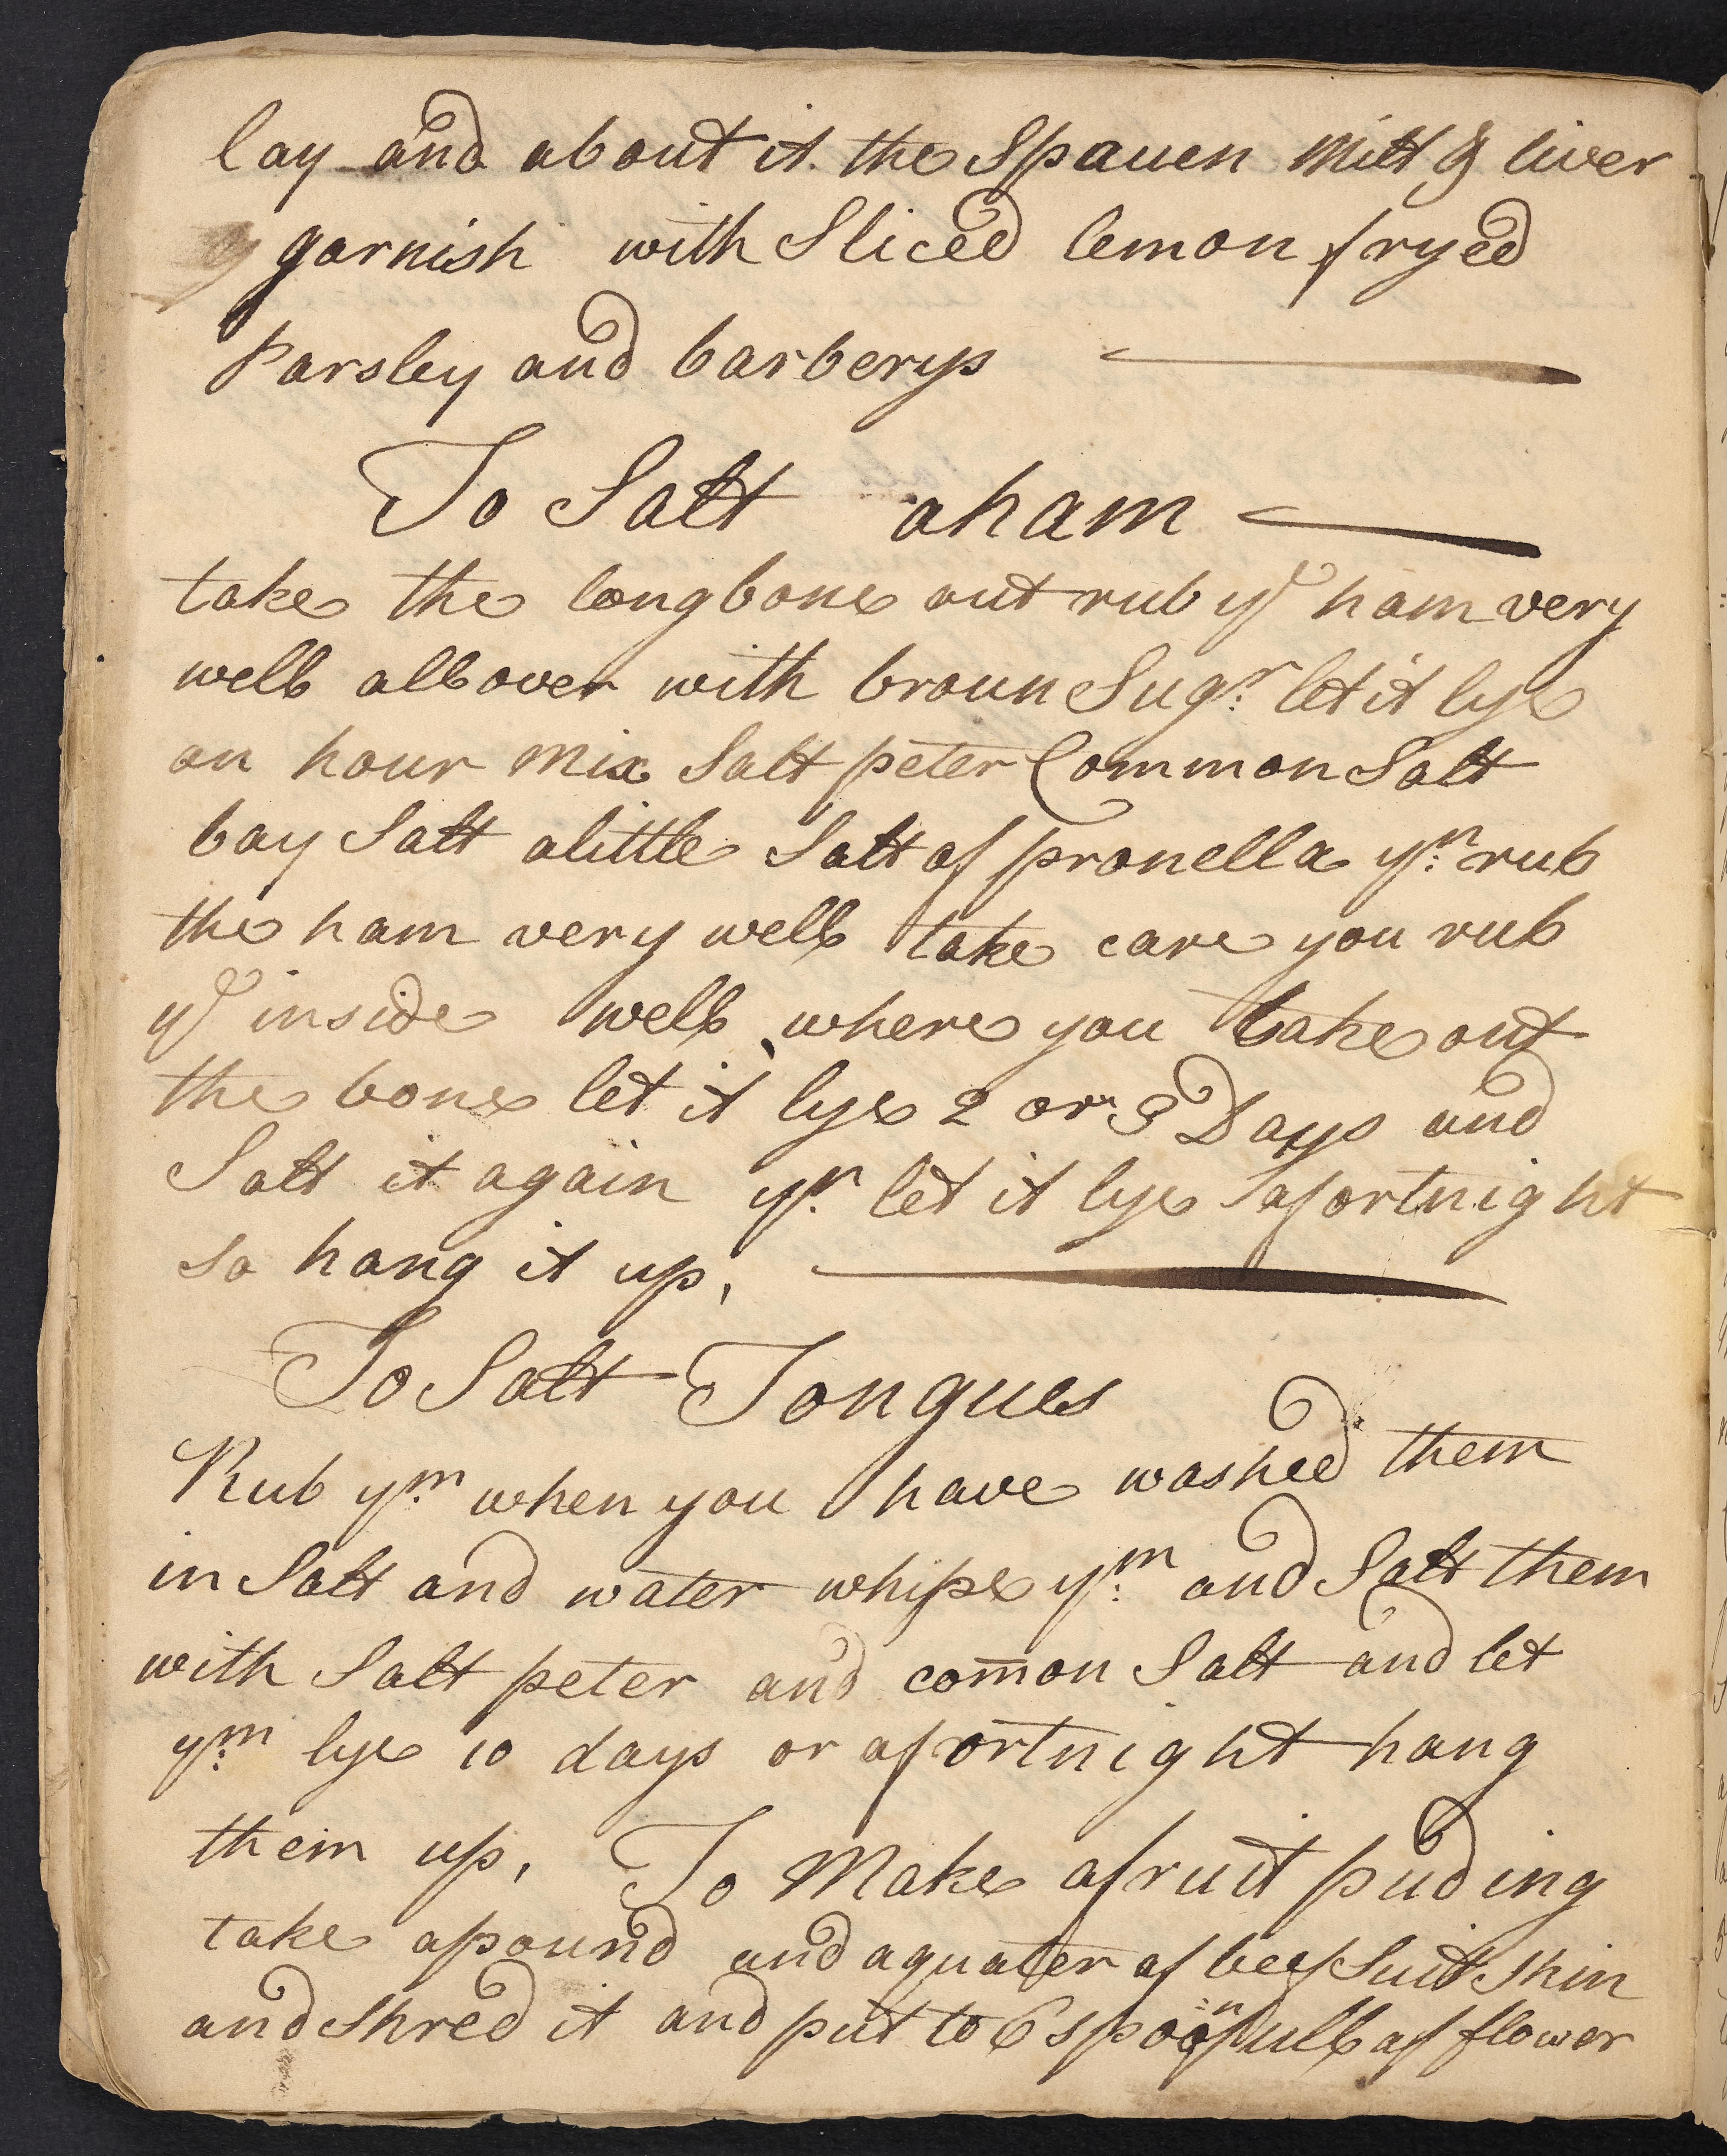 lay and about it the Spauen Milt & liver
& garnish with Sliced lemon fryed
Parsley and barberys
To Salt aham
take the long bone out rub ye ham very
well all over with broun Sugr: let it lye
an hour Mix Salt peter Common Salt
bay Salt alittle Salt of pronella yn: rub
the ham very well take care you rub
ye inside well where you take out
the bone let it lye 2 or 3 Days and
Salt it again yn: let it lye afortnight
so hang it up,
To Salt Tongues
Rub ym: when you have washed them
in Salt and water whipe ym: and Salt them
with Salt peter and com̄on Salt and let
ym: lye 10 days or afortnight hang
them up, To Make afruit puding
take apound and aquater of beef Suit Skin
and Shred it and put to 6 spoonfull of flower